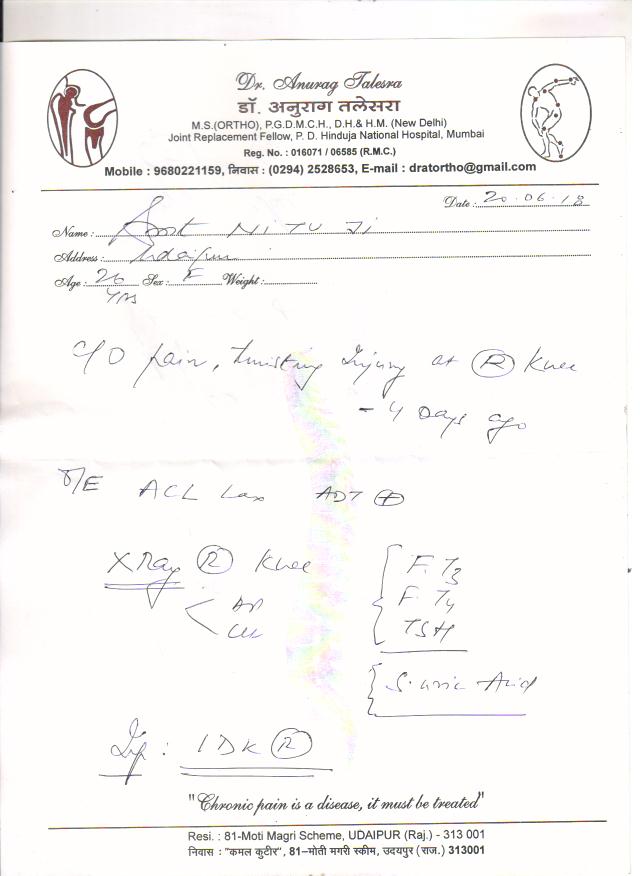 Dr. Anurag Talesra
डॉ. अनुराग तलेसरा
M.S.(ORTHO), P.G.D.M.C.H., D.H.& H.M. (New Delhi)
Joint Replacement Fellow, P. D. Hinduja National Hospital, Mumbai
Reg. No. : 016071 / 06585 (R.M.C.)
Mobile : 9680221159, निवास : (0294) 2528653, E-mail : dratortho@gmail.com
Date : 20.06.18
Name : Smt NITU Ji
Address : Udaipur
Age : 26 yrs Sex : F Weight :
C/O pain, twisting Injury at (R) Knee
- 4 Days ago
O/E ACL Lax ADT (+)
X Ray (R) Knee
AP
F. T3
F. T4
TSH
S. uric Acid
Imp : IDK (R)
"Chronic pain is a disease, it must be treated"
Resi. : 81-Moti Magri Scheme, UDAIPUR (Raj.) - 313 001
निवास : "कमल कुटीर", 81-मोती मगरी स्कीम, उदयपुर (राज.) 313001